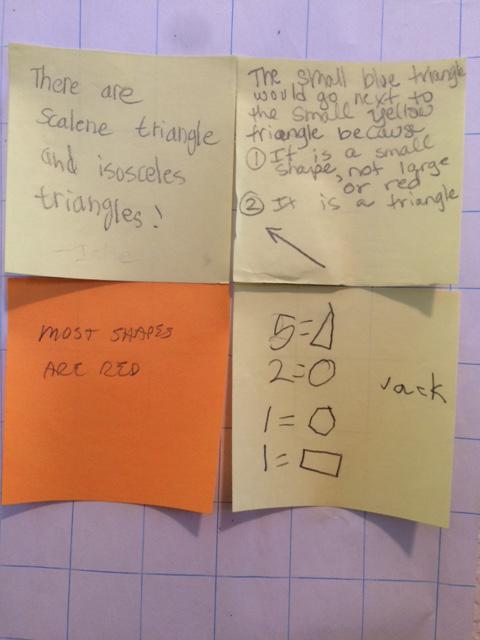 There are
Scalene triangle
and isosceles
triangles!
The small blue triangle
would go next to
the small yellow
triangle because
① It is a small
shape, not large
or red
② It is a triangle
MOST SHAPES
ARE RED
5=
2=
1=
1=
Jack